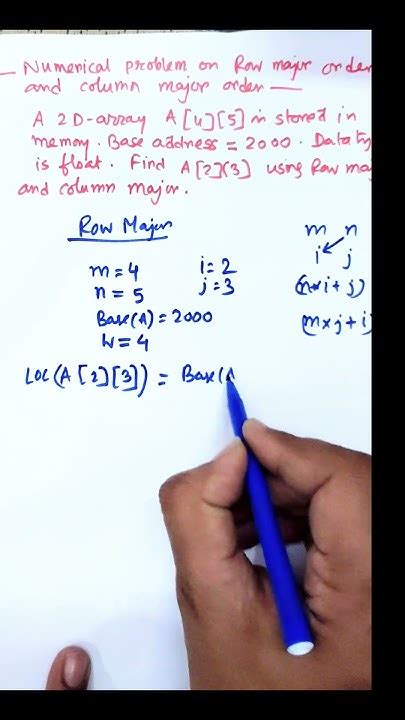 — Numerical problem on Row major order
and column major order —
A 2D-array A[4][5] is stored in
memory. Base address = 2000. Data ty
is float. Find A[2][3] using Row maj
and column major.
Row Major
m = 4
n = 5
Base(A) = 2000
W = 4
i = 2
j = 3
m n
i j
(n*i + j)
(m*j + i)
LOC(A[2][3]) = Base(A